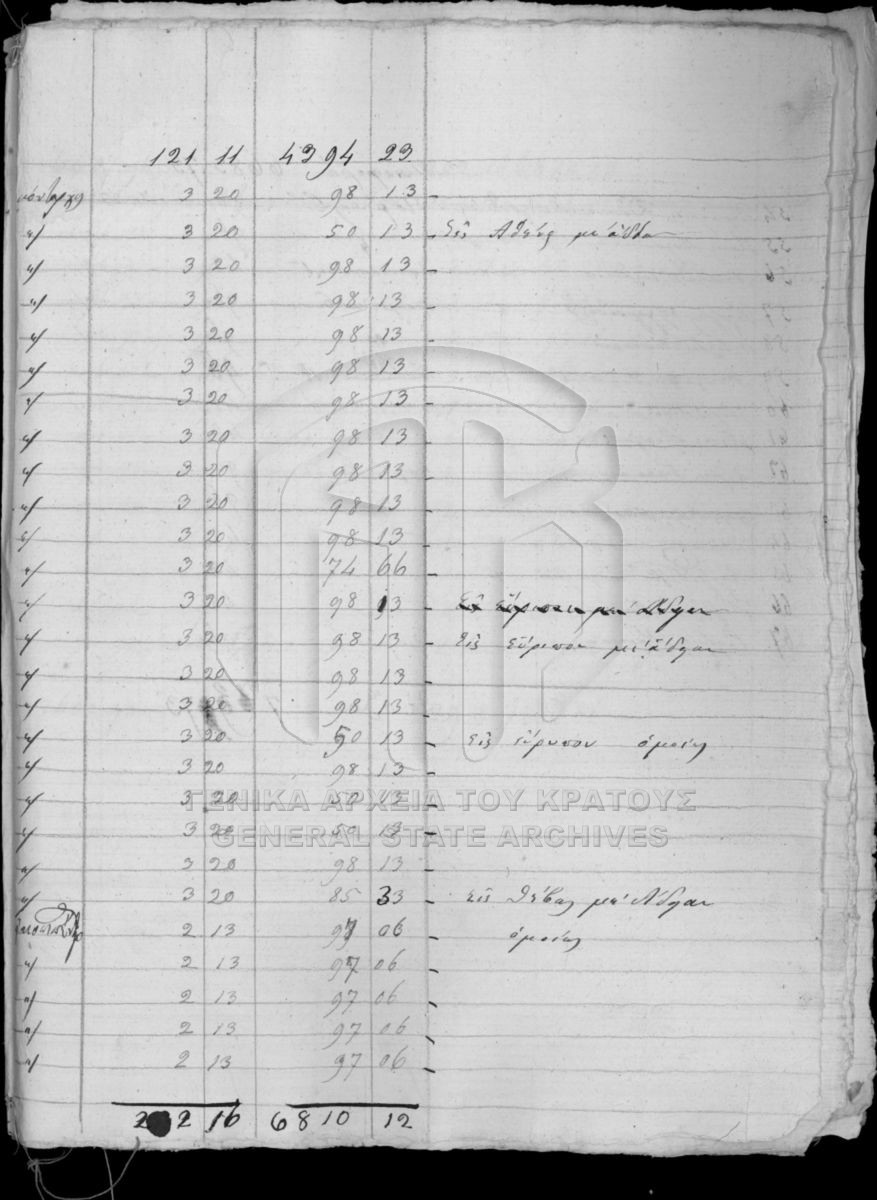 121 11 43 94 23
3 20 98 13 -
" 3 20 50 13 - Εἰς Ἀθήνας μὲ ἄδειαν
" 3 20 98 13 -
" 3 20 98 13 -
" 3 20 98 13 -
" 3 20 98 13 -
" 3 20 98 13 -
" 3 20 98 13 -
" 3 20 98 13 -
" 3 20 98 13 -
" 3 20 98 13 -
" 3 20 74 66 -
" 3 20 98 13 -
" 3 20 98 13 - Εἰς εὔριπον μὲ ἄδειαν
" 3 20 98 13 -
" 3 20 98 13 -
" 3 20 50 13 - εἰς εὔριπον ὁμοίως
" 3 20 98 13 -
" 3 20 50 13 -
" 3 20 50 13 -
" 3 20 98 13 -
" 3 20 85 33 - εἰς Θήβας μὲ ἄδειαν
2 13 97 06 - ὁμοίως
" 2 13 97 06 -
" 2 13 97 06 -
" 2 13 97 06 -
" 2 13 97 06 -
2 2 16 68 10 12
ΓΕΝΙΚΑ ΑΡΧΕΙΑ ΤΟΥ ΚΡΑΤΟΥΣ
GENERAL STATE ARCHIVES